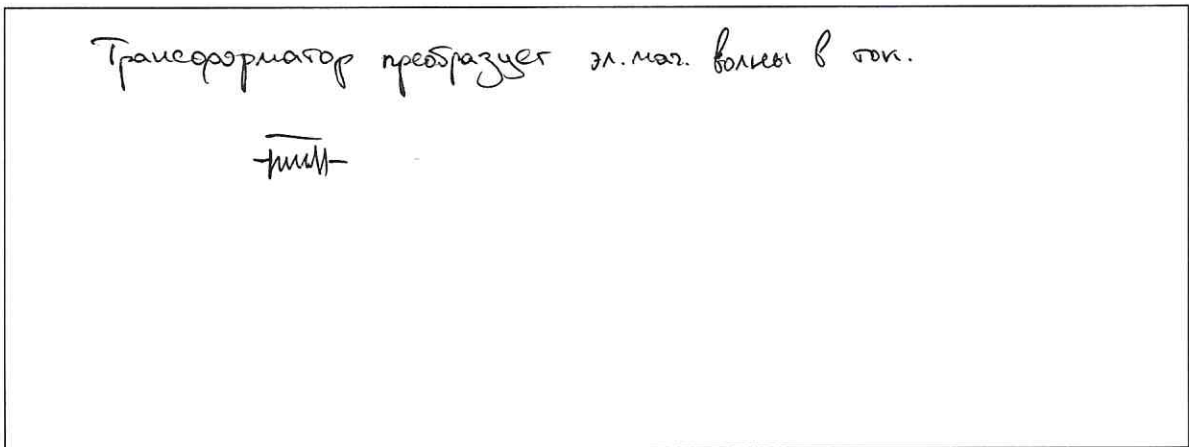 Трансформатор преобразует эл. маг. волны в ток.